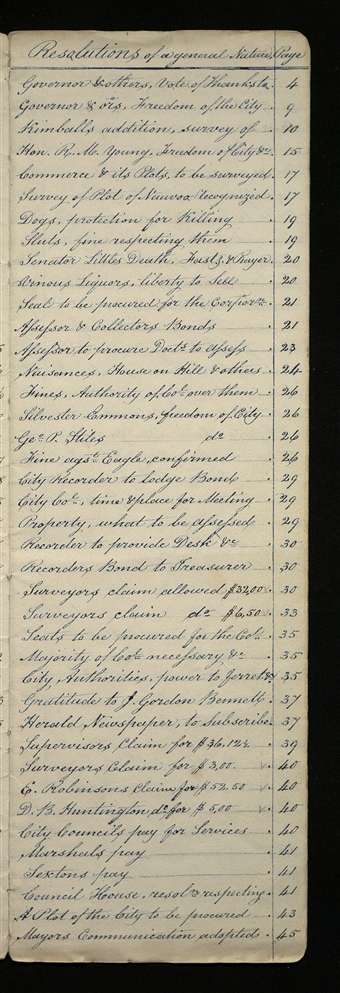 Resolutions of a general Nature, Page
Governor & others, Vote of Thanks to 4
Governor & ors, Freedom of the City 9
Kimballs addition, survey of 10
Hon. R. M. Young, Freedom of City &c. 15
Commerce & its Plots, to be surveyed 17
Survey of Plot of Nauvoo recognized 17
Dogs, protection for Killing 19
Sluts, fine respecting them 19
Senator Littles Death, Fast, & Prayer 20
Vinous Liquors, liberty to Sell 20
Seal to be procured for the Corporn. 21
Assessor & Collectors Bonds 21
Assessor to procure Docts. to assess 23
Nuisances, House on Hill & others 24
Fines, Authority of Col. over them 26
Silvester Emmons, freedom of City 26
Geo. P. Stiles do. 26
Fine agst. Eagle, confirmed 26
City Recorder to lodge Bond 29
City Col., time & place for Meeting 29
Property, what to be assessed 29
Recorder to provide Desk &c 30
Recorders Bond to Treasurer 30
Surveyors claim allowed $32,00 30
Surveyors claim do. $6,50 33
Seats to be procured for the Col. 35
Majority of Col. necessary &c 35
City Authorities, power to ferret &c 35
Gratitude to J. Gordon Bennett 37
Herald Newspaper, to Subscribe 37
Supervisors Claim for $36.12½ 39
Surveyors Claim for $3,00 40
E. Robinsons Claim for $52.50 40
D. B. Huntington do. for $5,00 40
City Councils pay for Services 40
Marshals pay 41
Sextons pay 41
Council House, resoln. respecting 41
A Plot of the City to be procured 43
Mayors Communication adopted 45